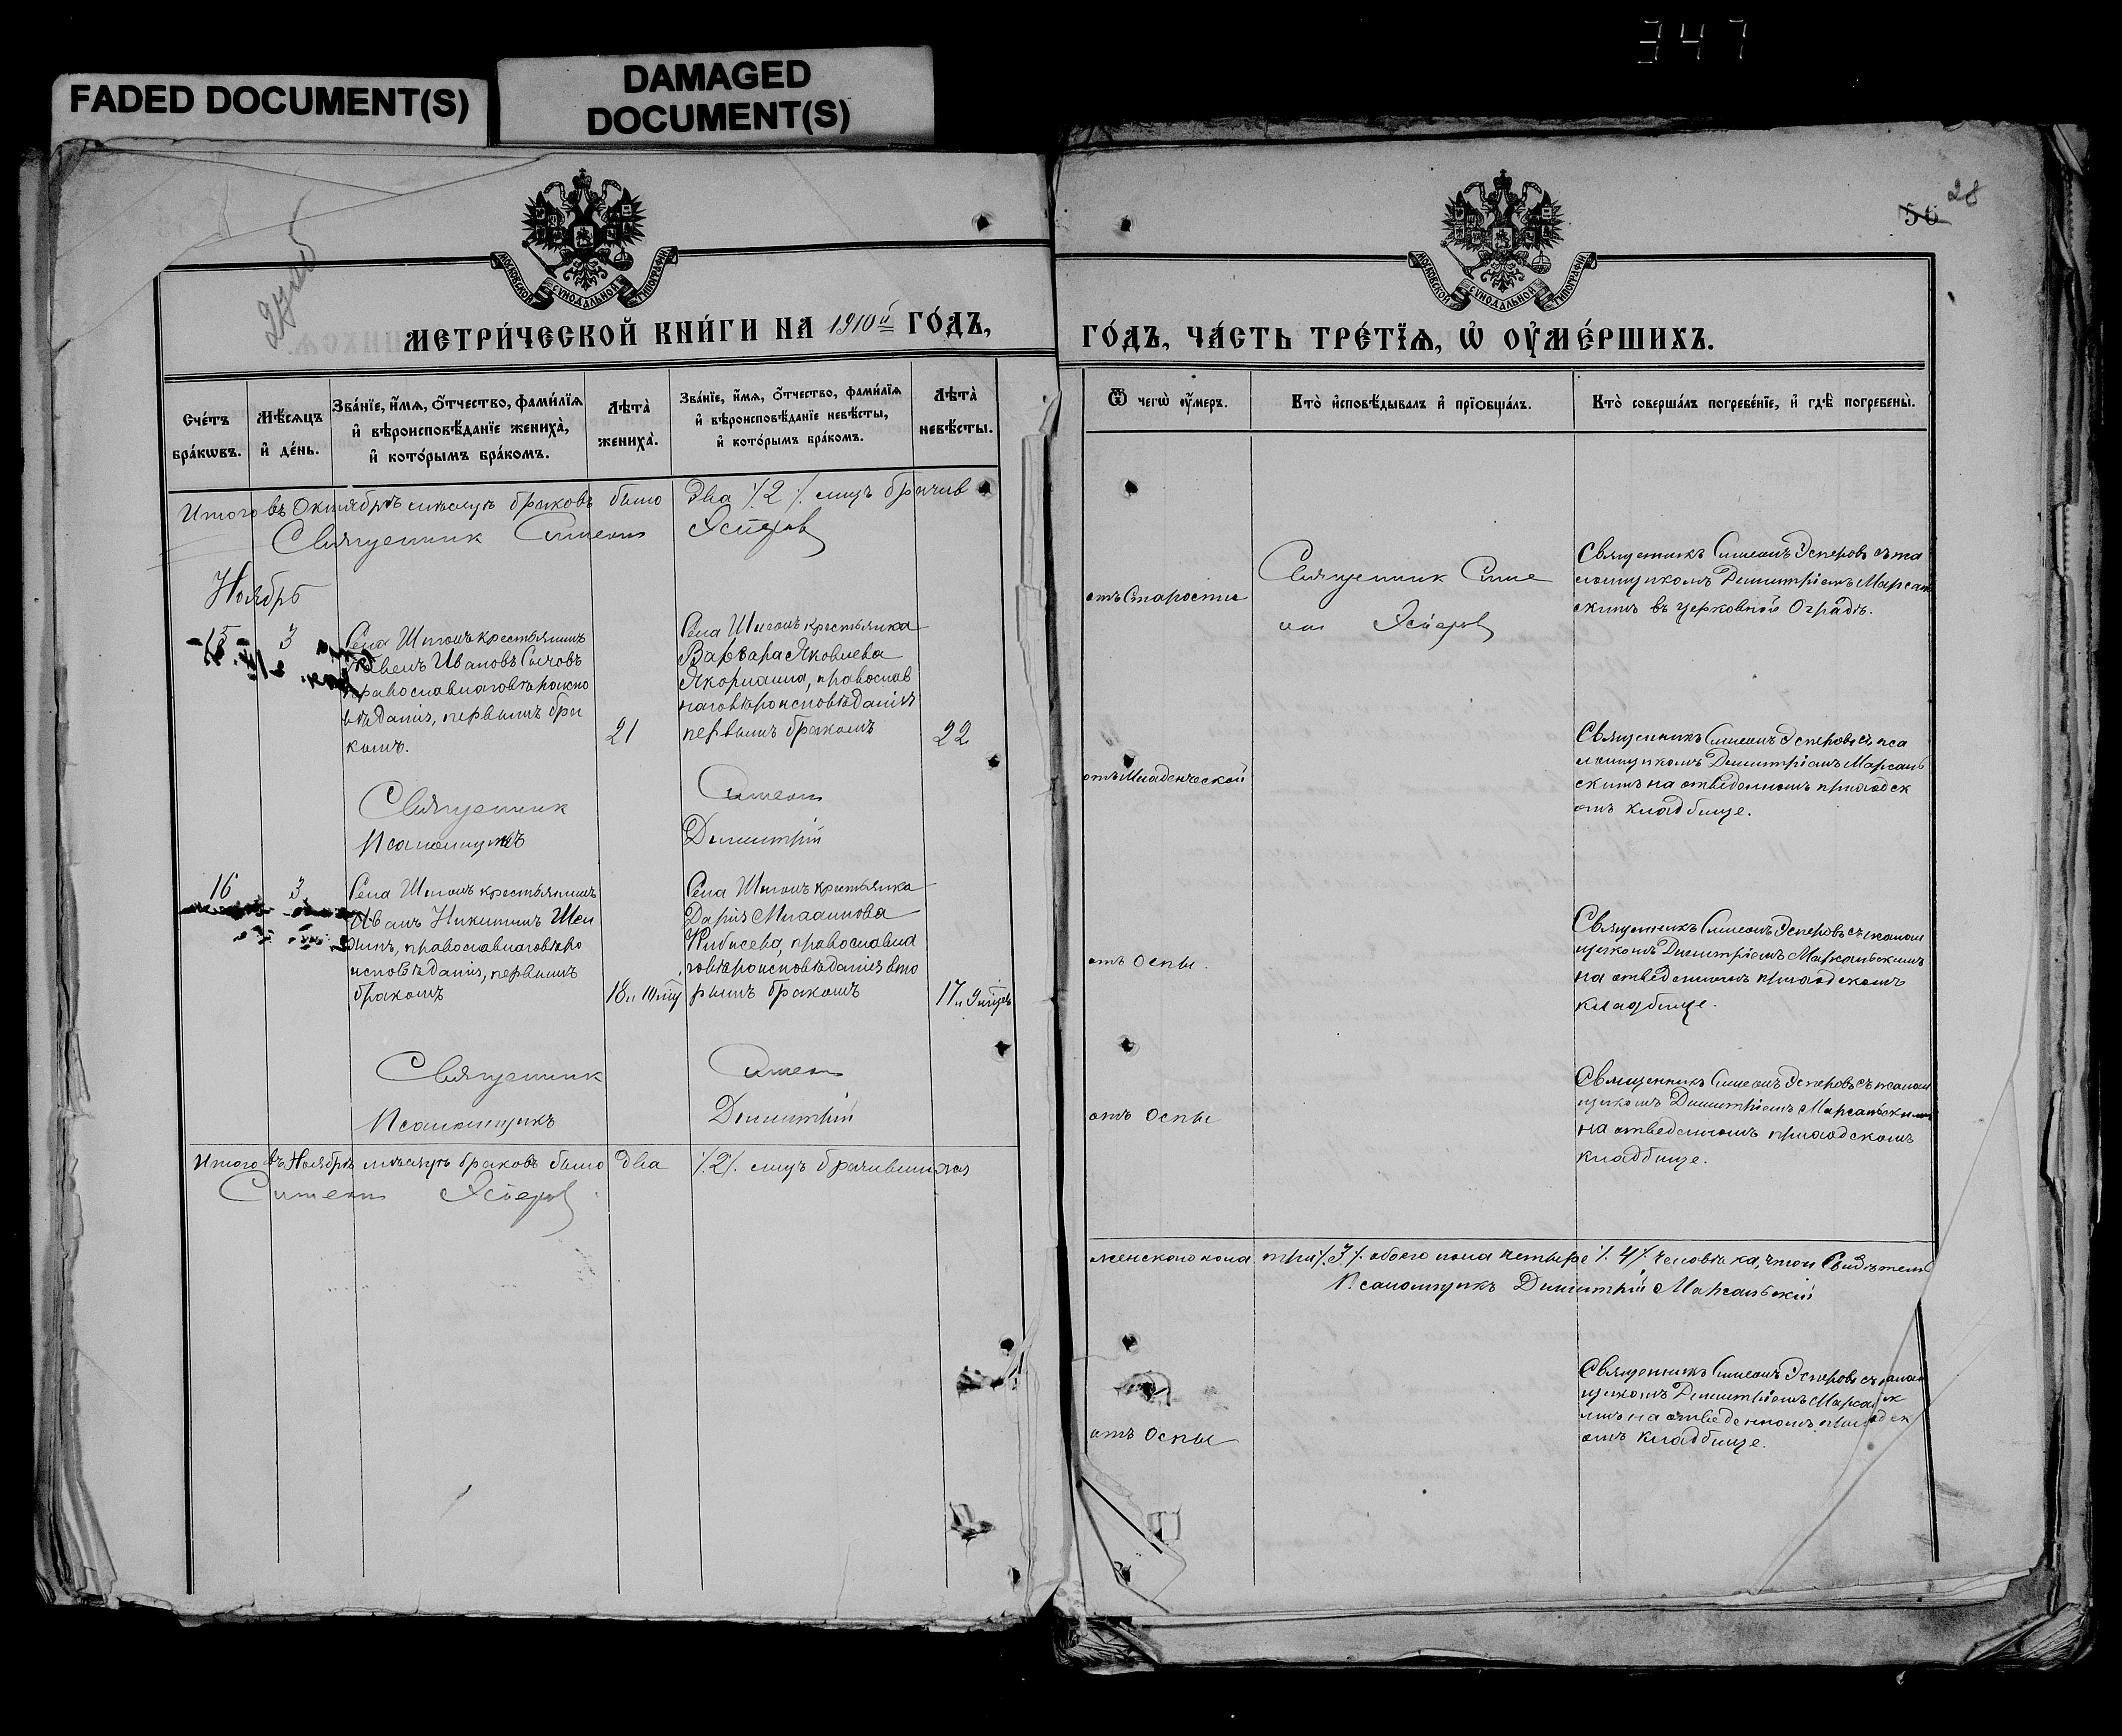 347
FADED DOCUMENT(S)
DAMAGED
DOCUMENT(S)
МОСКОВСКОЙ СѴНОДАЛЬНОЙ ТИПОГРАФІИ
МЕТРИ́ЧЕСКОЙ КНИ́ГИ НА 1910й ГО́ДЪ,
Сче́тъ бра́кѡвъ.
Мѣ́сѧцъ и҆ де́нь.
Зва́нїе, и҆́мѧ, ѻ҆́тчество, фами́лїѧ
и҆ вѣроисповѣ́данїе жениха̀,
и҆ кото́рымъ бра́комъ.
Лѣта̀ жениха̀.
Зва́нїе, и҆́мѧ, ѻ҆́тчество, фами́лїѧ
и҆ вѣроисповѣ́данїе невѣ́сты,
и҆ кото́рымъ бра́комъ.
Лѣта̀ невѣ́сты.
Итого въ Октябрѣ мѣсяцѣ браковъ было два ⁒2⁒ лицъ брачив
Священник Симеон Эсперов
Ноябрь
15 3
Села крестьянинъ
Ивановъ Сычовъ
православнаго вѣроиспо
вѣданія, первымъ бра
комъ.
21
Села крестьянка
Варвара Яковлева
православ
наго вѣроисповѣданія
первымъ бракомъ
22
Священник Симеон
Псаломщикъ Димитрій
16 3
Села крестьянинъ
Иванъ Никитинъ
православнаго вѣро
исповѣданія, первымъ
бракомъ
18 и 10
Села крестьянка
Дарія
православна
го вѣроисповѣданія вто
рымъ бракомъ
17 и 9
Священник Симеон
Псаломщикъ Димитрій
Итого въ Ноябрѣ мѣсяцѣ браковъ было два ⁒2⁒ лицъ брачившихся
Симеон Эсперов
28
56
МОСКОВСКОЙ СѴНОДАЛЬНОЙ ТИПОГРАФІИ
ГО́ДЪ, ЧА́СТЬ ТРЕ́ТЇѦ, Ѡ҆ ОУ҆МЕ́РШИХЪ.
Ѿ чегѡ̀ оу҆́меръ.
Кто̀ и҆сповѣ́дывалъ и҆ прїѡбща́лъ.
Кто̀ соверша́лъ погребе́нїе, и҆ гдѣ̀ погребены̀.
отъ Старости
Священник Симе
он Эсперов
Священникъ Симеонъ Эсперовъ съ пса
ломщикомъ Димитріемъ Марсаль
скимъ въ церковной Оградѣ.
отъ Младенческой
Священникъ Симеонъ Эсперовъ съ пса
ломщикомъ Димитріемъ Марсаль
скимъ на отведенномъ приходск
омъ кладбище.
отъ Оспы.
Священникъ Симеонъ Эсперовъ съ псалом
щикомъ Димитріемъ Марсальскимъ
на отведенномъ приходскомъ
кладбище.
отъ Оспы
Священникъ Симеонъ Эсперовъ съ псалом
щикомъ Димитріемъ Марсальскимъ
на отведенномъ приходскомъ
кладбище.
женскаго пола три ⁒3⁒ обоего пола четыре ⁒4⁒ человѣка, что и Свидѣтель
Псаломщикъ Димитрій Марсальскій
отъ Оспы
Священникъ Симеонъ Эсперовъ съ псалом
щикомъ Димитріемъ Марсальск
имъ на отведенномъ приходск
омъ кладбище.